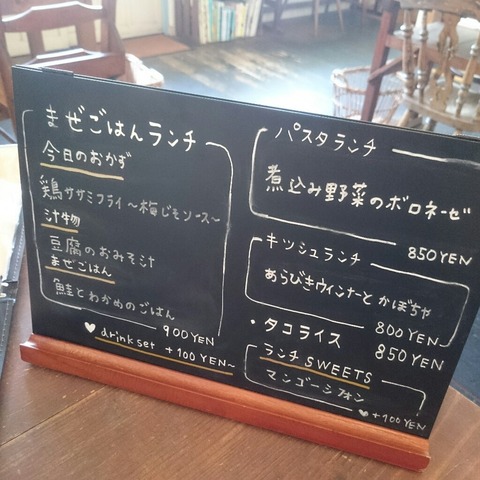 まぜごはんランチ
今日のおかず
鶏ササミフライ〜梅じそソース〜
汁物
豆腐のおみそ汁
まぜごはん
鮭とわかめのごはん
900YEN
♥ drink set +100YEN〜
パスタランチ
煮込み野菜のボロネーゼ
850YEN
キッシュランチ
あらびきウィンナーとかぼちゃ
800YEN
・タコライス
850YEN
ランチSWEETS
マンゴーシフォン
♥+100YEN